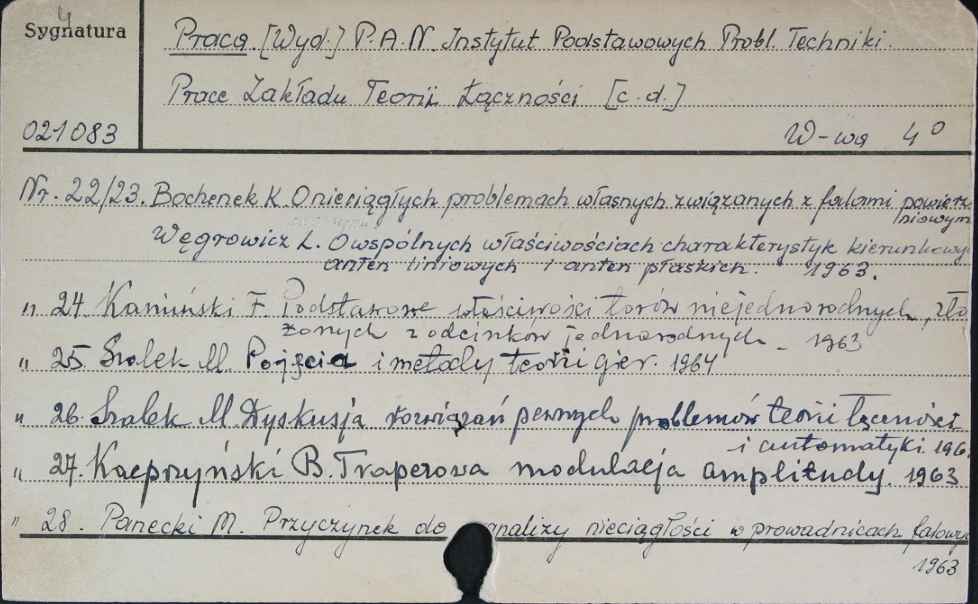 Sygnatura
Prace [Wyd.] P.A.N Instytut Podstawowych Probl. Techniki.
Prace Zakładu Teorii Łączności [c.d.]
021083
W-wa 4°
Nr. 22/23. Bochenek K. O nieciągłych problemach własnych związanych z falami powierz-
niowym
Węgrowicz L. O wspólnych właściwościach charakterystyk kierunkowy
anten liniowych i anten płaskich. 1963.
" 24 Kamiński F. Podstawowe właściwości torów niejednorodnych, zło
żonych z odcinków jednorodnych - 1963
" 25. Szalek M. Pojęcia i metody teorii gier. 1964
" 26. Szalek M. Dyskusja rozwiązań pewnych problemów teorii łączności
i automatyki. 196
" 27. Kacprzyński B. Traperowa modulacja amplitudy. 1963
" 28. Panecki M. Przyczynek do analizy nieciągłości w prowadnicach falowyc
1963